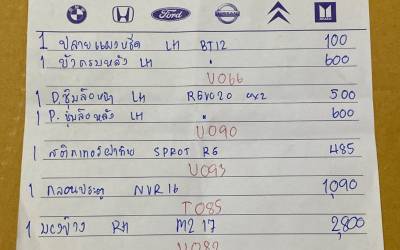 Ford NISSAN
1 LH BT12 100
1 บัวครบหลัง LH " 600
U066
1 D. ซุ้มล้อหน้า LH REVO20 4x2 500
1 P. ซุ้มล้อหลัง LH " 600
U090
1 สติกเกอร์ฝาท้าย SPROT R6 485
U093
1 กลอนประตู NVR16 1,090
T085
1 มองข้าง RH M2 17 2,800
U082